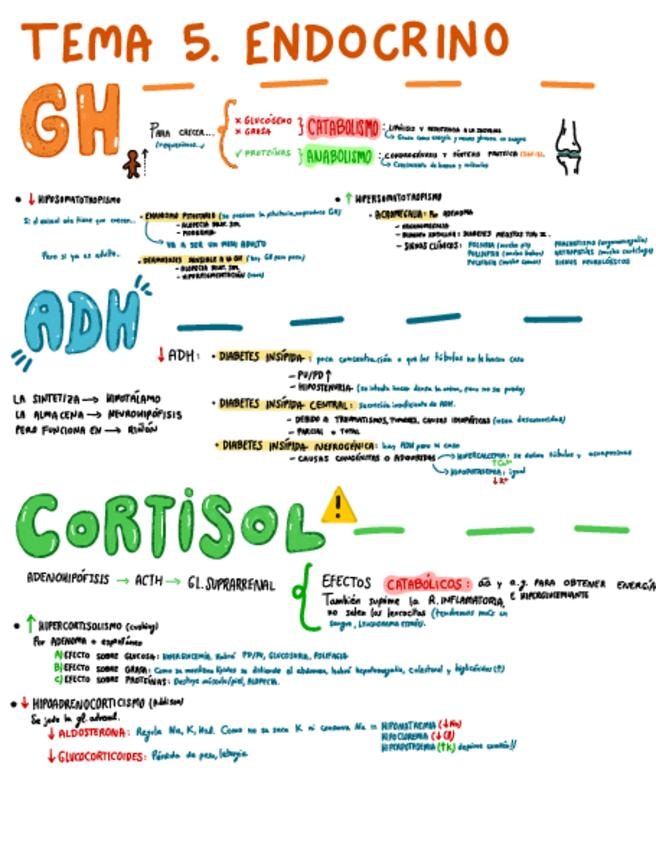 TEMA 5. ENDOCRINO
GH
PARA CRECER...
(requerimos)
x GLUCÓGENO
x GRASA
CATABOLISMO: LIPÓLISIS Y RESISTENCIA A LA INSULINA
✓ PROTEÍNAS
ANABOLISMO: CONDROGÉNESIS Y SÍNTESIS PROTEICA
Crecimiento de huesos y músculos
• ↓ HIPOSOMATOTROPISMO
Si el animal aún tiene que crecer...
- ENANISMO PITUITARIO
- ALOPECIA BILAT. SIM.
VA A SER UN MINI ADULTO
Pero si ya es adulto..
- DERMATOSIS SENSIBLE A LA GH (hay GH pero poca)
- ALOPECIA BILAT. SIM.
- HIPERPIGMENTACIÓN
• ↑ HIPERSOMATOTROPISMO
- ACROMEGALIA: Por ADENOMA
- SIGNOS CLÍNICOS: POLIURIA (mucho pis)
POLIDIPSIA (mucho beber)
POLIFAGIA (mucho comer)
SIGNOS NEUROLÓGICOS
ADH
↓ ADH:
• DIABETES INSÍPIDA: poca concentración o que los túbulos no le hacen caso
- PU/PD ↑
- HIPOSTENURIA
• DIABETES INSÍPIDA CENTRAL: Secreción insuficiente de ADH.
- DEBIDO A TRAUMATISMOS, TUMORES, CAUSAS IDIOPÁTICAS (causa desconocida)
- PARCIAL o TOTAL
• DIABETES INSÍPIDA NEFROGÉNICA: hay ADH pero ni caso
- CAUSAS CONGÉNITAS O ADQUIRIDAS
HIPERCALCEMIA: se dañan túbulos y
HIPOPOTASEMIA: igual
↓ K+
LA SINTETIZA → HIPOTÁLAMO
LA ALMACENA → NEUROHIPÓFISIS
PERO FUNCIONA EN → RIÑÓN
CORTISOL
ADENOHIPÓFISIS → ACTH → GL. SUPRARRENAL
EFECTOS CATABÓLICOS: aa y a.g. PARA OBTENER ENERGÍA
E HIPERGLUCEMIANTE
También suprime la R. INFLAMATORIA,
no salen los leucocitos (tendremos más en
sangre, LEUCOGRAMA ESTRÉS).
• ↑ HIPERCORTISOLISMO (cushing)
Por ADENOMA o espontáneo
A) EFECTO SOBRE GLUCOSA: HIPERGLUCEMIA, habrá PD/PU, GLUCOSURIA, POLIFAGIA
B) EFECTO SOBRE GRASA: Como se movilizan lípidos se distiende el abdomen, habrá hepatomegalia, colesterol y triglicéridos (↑)
C) EFECTO SOBRE PROTEÍNAS: Destruye músculo/piel, ALOPECIA.
• ↓ HIPOADRENOCORTICISMO (Addison)
Se jode la gl. adrenal.
↓ ALDOSTERONA: Regula Na, K, H2O. Como no se saca K ni conserva Na = HIPONATREMIA (↓Na)
HIPOCLOREMIA (↓Cl)
HIPERPOTASEMIA (↑K)
↓ GLUCOCORTICOIDES: Pérdida de peso, letargia